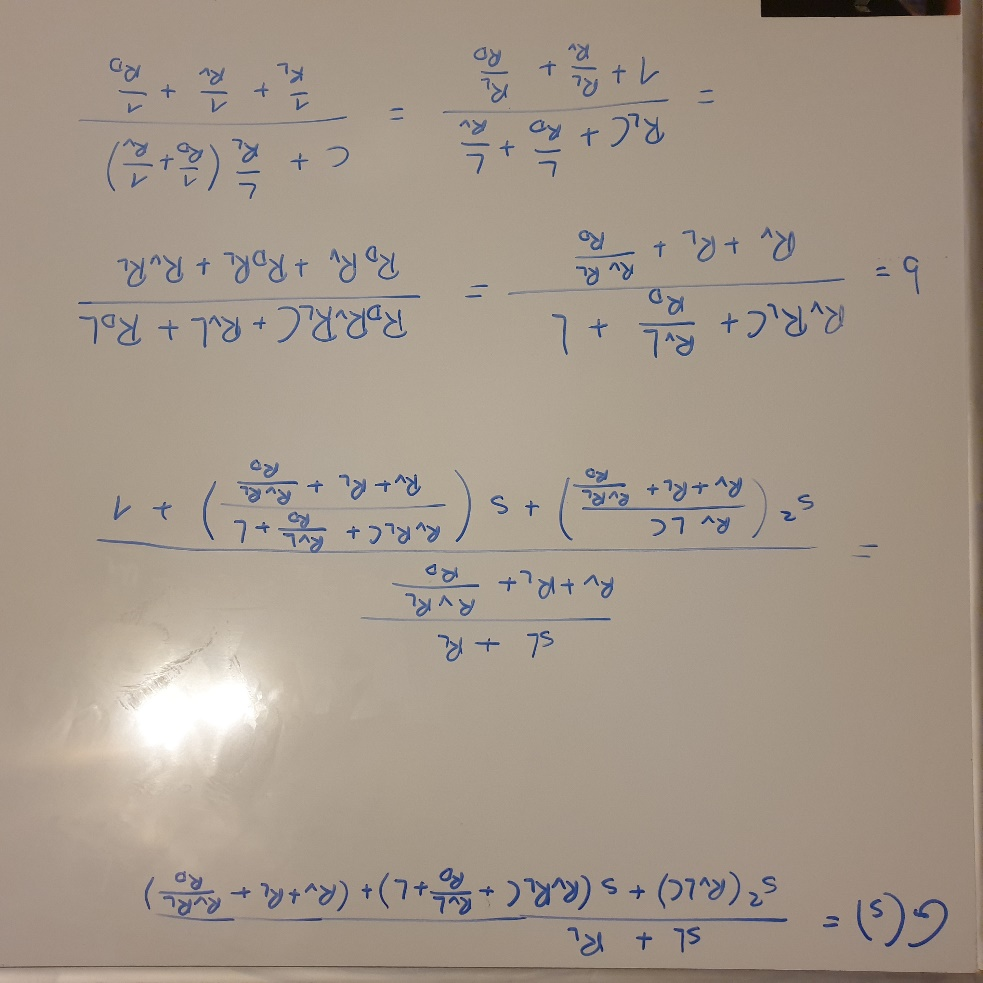 G(s) = (sL + R_L) / (s²(R_V LC) + s(R_V R_L C + R_V L/R_D + L) + (R_V + R_L + R_V R_L/R_D))
= ((sL + R_L) / (R_V + R_L + R_V R_L/R_D)) / (s²(R_V LC / (R_V + R_L + R_V R_L/R_D)) + s((R_V R_L C + R_V L/R_D + L) / (R_V + R_L + R_V R_L/R_D)) + 1)
b = (R_V R_L C + R_V L/R_D + L) / (R_V + R_L + R_V R_L/R_D) = (R_D R_V R_L C + R_V L + R_D L) / (R_D R_V + R_D R_L + R_V R_L)
= (R_L C + L/R_D + L/R_V) / (1 + R_L/R_V + R_L/R_D) = (C + L/R_L (1/R_D + 1/R_V)) / (1/R_L + 1/R_V + 1/R_D)